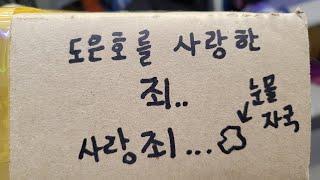 도은호를 사랑한
죄..
사랑죄...
눈물
자국